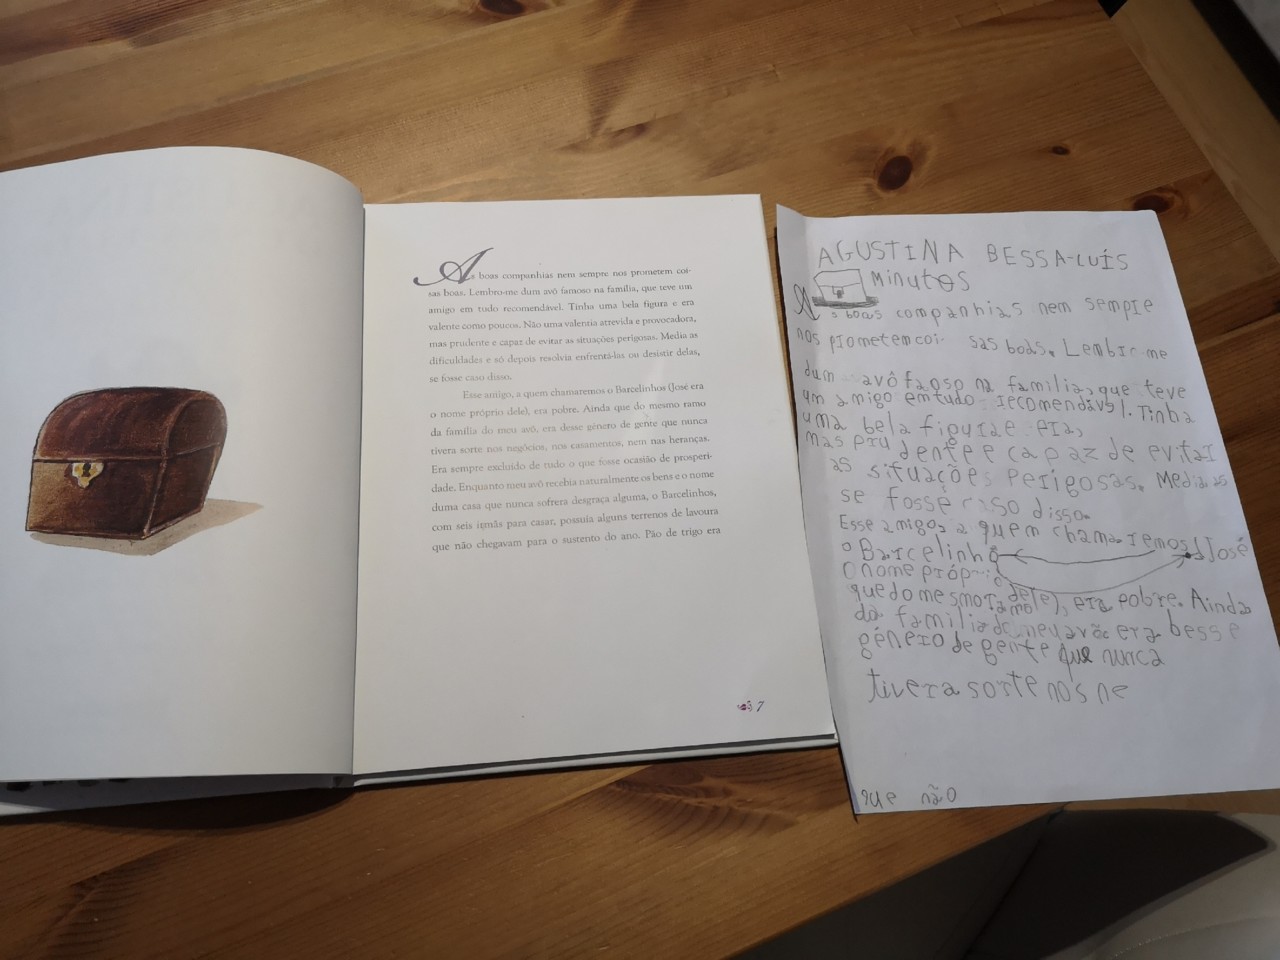 As boas companhias nem sempre nos prometem coi-
sas boas. Lembro-me dum avô famoso na família, que teve um
amigo em tudo recomendável. Tinha uma bela figura e era
valente como poucos. Não uma valentia atrevida e provocadora,
mas prudente e capaz de evitar as situações perigosas. Media as
dificuldades e só depois resolvia enfrentá-las ou desistir delas,
se fosse caso disso.
Esse amigo, a quem chamaremos o Barcelinhos (José era
o nome próprio dele), era pobre. Ainda que do mesmo ramo
da família do meu avô, era desse género de gente que nunca
tivera sorte nos negócios, nos casamentos, nem nas heranças.
Era sempre excluído de tudo o que fosse ocasião de prosperi-
dade. Enquanto meu avô recebia naturalmente os bens e o nome
duma casa que nunca sofrera desgraça alguma, o Barcelinhos,
com seis irmãs para casar, possuía alguns terrenos de lavoura
que não chegavam para o sustento do ano. Pão de trigo era
7
AGUSTINA BESSA-LUÍS
Minutos
As boas companhias nem sempre
nos prometem coi- sas boas. Lembro me
dum avô faoso na familia, que teve
um amigo em tudo recomendável. Tinha
uma bela figura e era,
mas pru dente e capaz de evitar
as situações perigosas. Media as
se fosse caso disso.
Esse amigo, a quem chamaremos (José
o Barcelinho
O nome próprio dele), era pobre. Ainda
que do mesmo ramo
da familia do meu avô era besse
género de gente que nunca
tivera sorte nos ne
que não